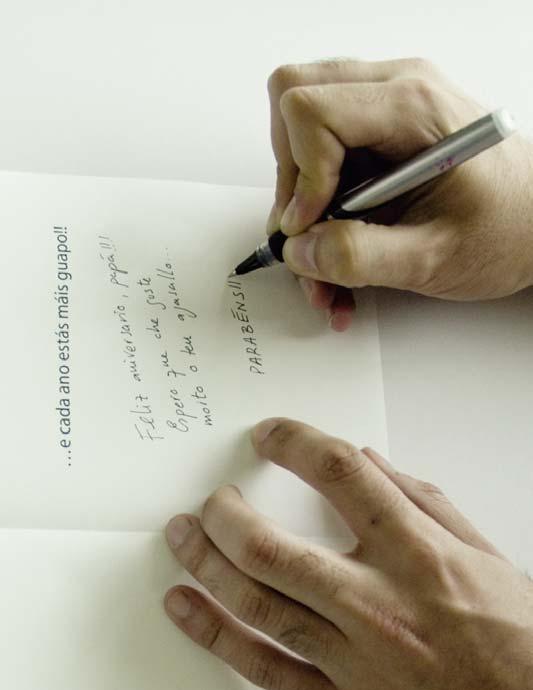 ...e cada ano estás máis guapo!!
Feliz aniversario, papá!!!
Espero que che guste
moito o teu agasallo...
PARABÉNS!!